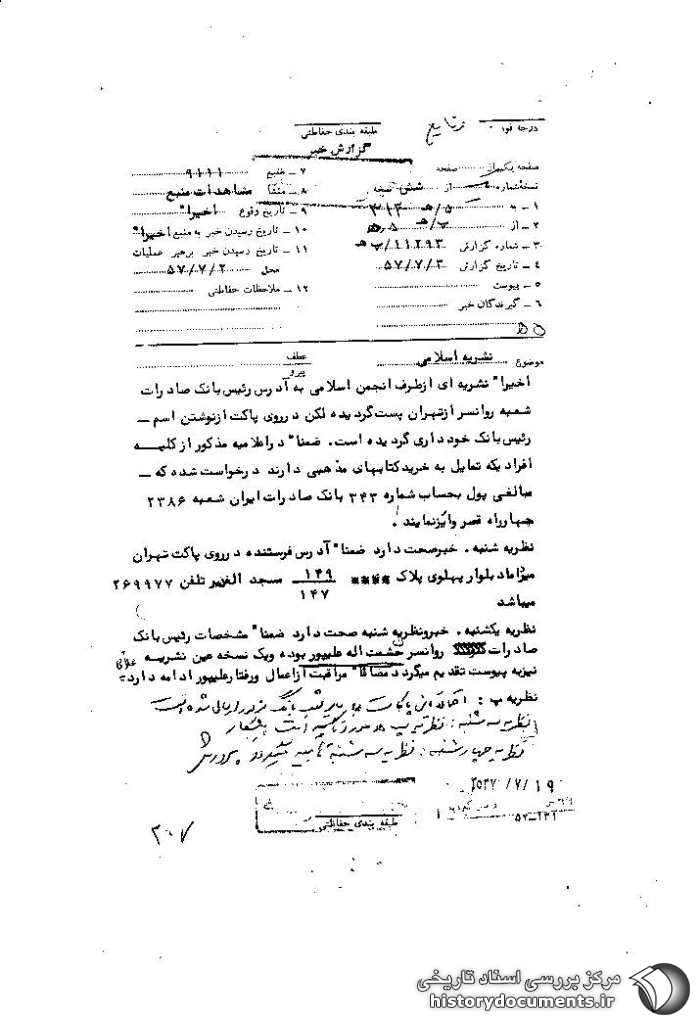 درجه فور
وقایع
طبقه بندی حفاظتی
گزارش خبر
صفحه یک از صفحه
نسخه شماره از شش نسخه
۱ ـ به ۳۱۲ هـ/۵
۲ ـ از پ/هـ ۵
۳ ـ شماره گزارش ۱۱۲۹۳/پ هـ
۴ ـ تاریخ گزارش ۵۷/۷/۳
۵ ـ پیوست
۶ ـ گیرندگان خبر
۷ ـ منبع ۹۱۱۱
۸ ـ منشأ مشاهدات منبع
۹ ـ تاریخ وقوع اخیرا"
۱۰ ـ تاریخ رسیدن خبر به منبع اخیرا"
۱۱ ـ تاریخ رسیدن خبر برهبر عملیات
محل ۵۷/۷/۲
۱۲ ـ ملاحظات حفاظتی
موضوع نشریه اسلامی
عطف
پیرو
اخیرا" نشریه ای ازطرف انجمن اسلامی به آدرس رئیس بانک صادرات
شعبه روانسر ازتهران پست گردیده لکن درروی پاکت ازنوشتن اسم ـ
رئیس بانک خودداری گردیده است. ضمنا" دراعلامیه مذکور از کلیـــه
افرادیکه تمایل به خریدکتابهای مذهبی دارند درخواست شده که ـ
مبالغی پول بحساب شماره ۳۴۳ بانک صادرات ایران شعبه ۲۳۸۶
چهارراه قصر واریزنمایند.
نظریه شنبه. خبرصحت دارد ضمنا" آدرس فرستنده درروی پاکت تهران
میرداماد بلوار پهلوی پلاک ۱۴۹/۱۴۷ مسجد الغدیر تلفن ۲۶۹۹۷۷
میباشد
نظریه یکشنبه. خبرونظریه شنبه صحت دارد ضمنا" مشخصات رئیس بانک
صادرات روانسر حشمت اله علیپور بوده ویک نسخه عین نشریـــه
نیزبه پیوست تقدیم میگردد مضافا" مراقبت ازاعمال ورفتارعلیپور ادامه دارد ـ
نظریه پ :
نظریه سه شنبه : نظریه
نظریه چهارشنبه : نظریه سه شنبه تأیید میشود
۲۵۳۷/۷/۱۹
۵۷ـ۲۳۱
طبقه بندی حفاظتی
۲۰۷
مرکز بررسی اسناد تاریخی
historydocuments.ir